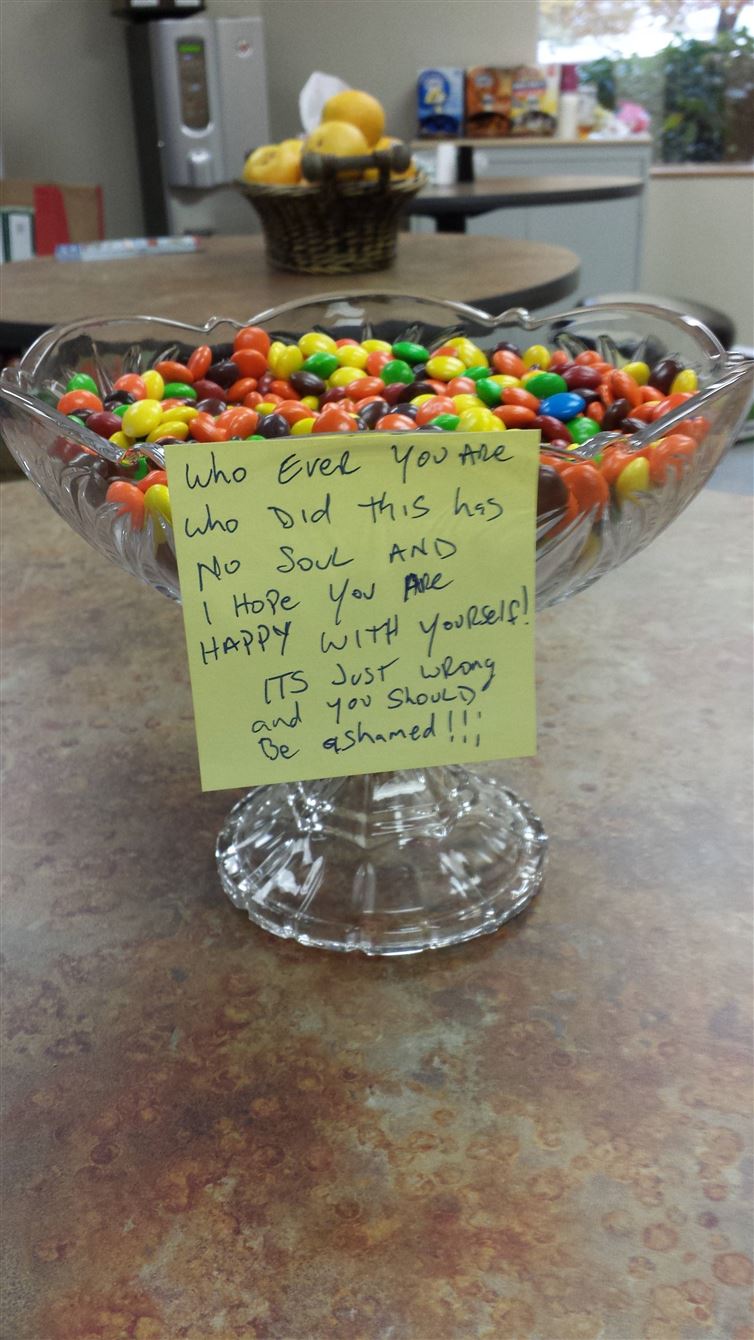 Who EveR You ARe
who DID THIS has
No SouL AND
I HoPe You ARe
HAPPY WITH YouRSelf!
ITS JusT wRong
and you SHoULD
Be ashamed!!!